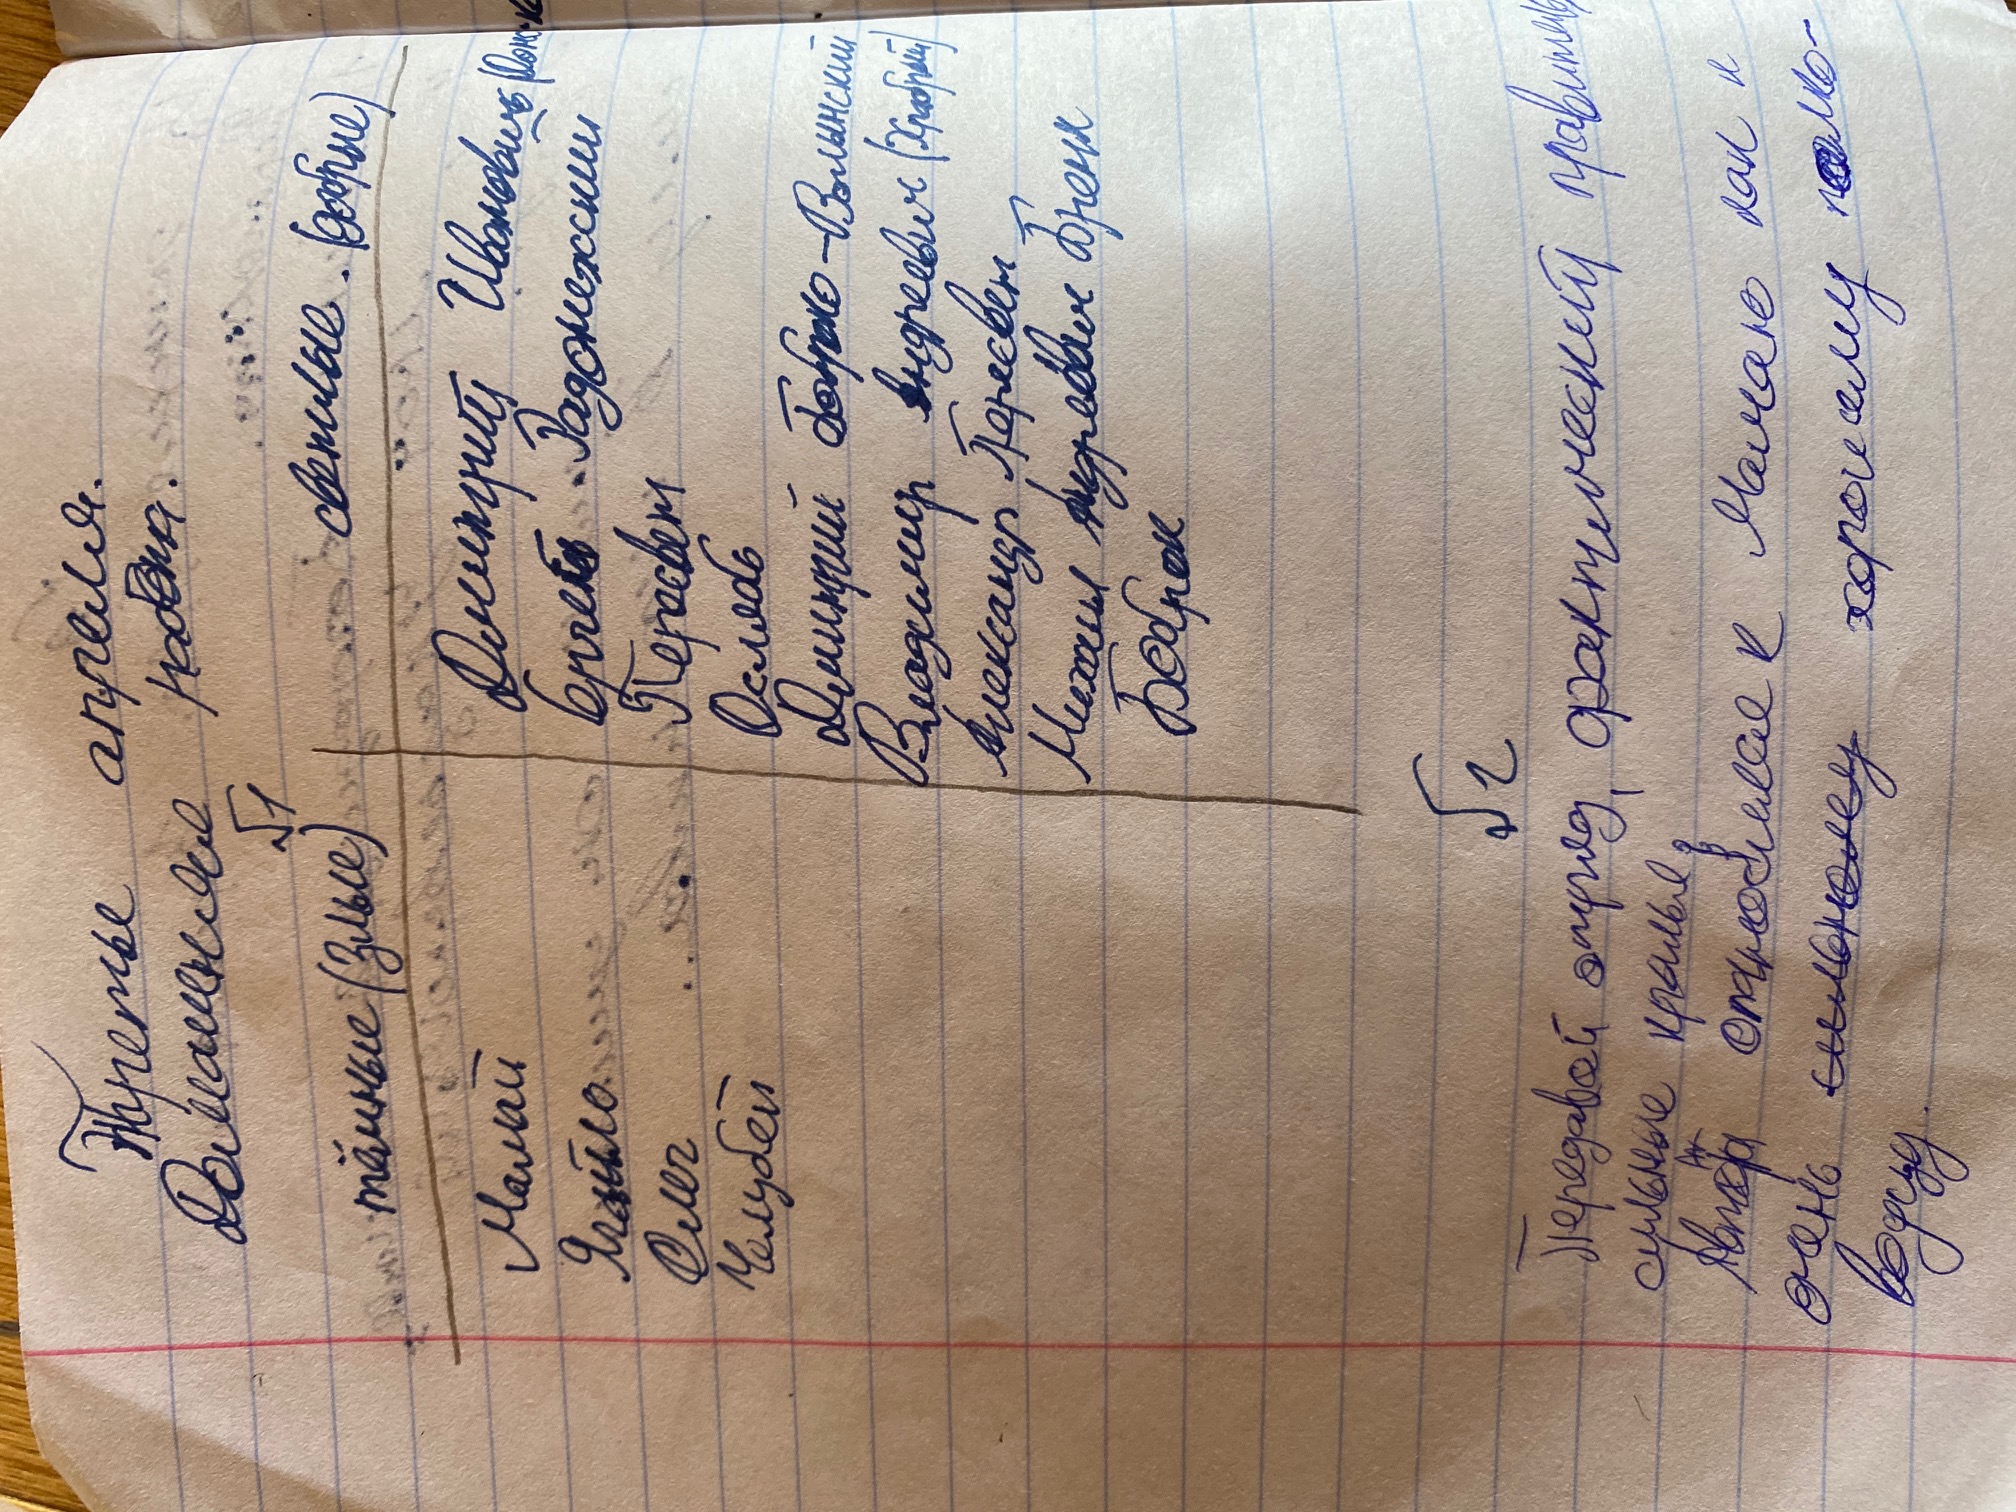 Третье апреля.
Домашняя работа.
№1
тёмные (Злые) светлые. (добрые)
Мамай Дмитрий Иванович (Донск
Ягайло. Сергей. Радонежский
Олег Пересвет
Челубей Ослябь
Дмитрий Боброк-Волынский
Владимир Андреевич (Храбрый)
Александр Пересвет
Михаил Андреевич Бренк
Боброк
№2
Передовой отряд, фактический правитель,
сильные крылья.
Автор относится к Мамаю как к
очень сильному хорошему полко-
водцу.